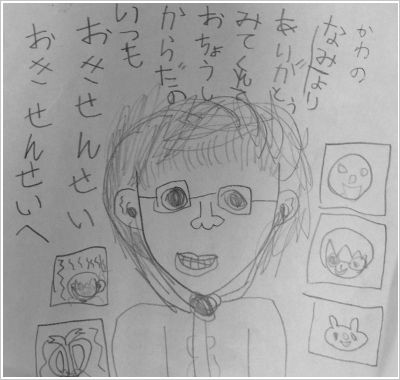 おきせんせいへ
おきせんせい
いつも
からだの
おちょうし
みてくれて
ありがとう
かわの
なみより